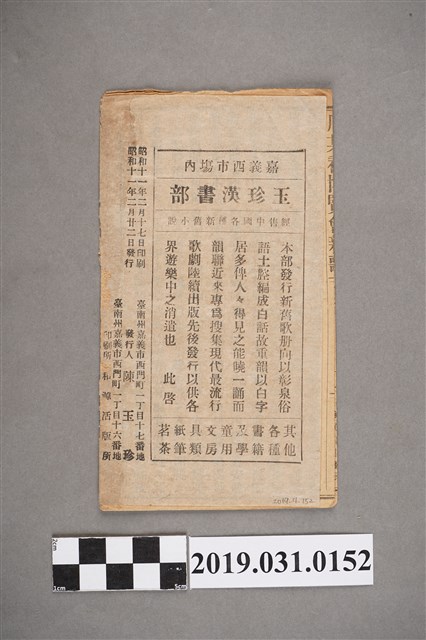 嘉義西市場內
玉珍漢書部
經售中國各種新舊小說
本部發行新舊歌册向以彰泉俗
語土腔編成白話故重韻以白字
居多俾人々得見之能曉一誦而
韻聯近來專爲搜集現代最流行
歌劇陸續出版先後發行以供各
界遊樂中之消遣也　此啓
其他
各種
書籍
及學
童用
文房
具類
紙筆
茗茶
昭和十一年二月十七日印刷
昭和十一年二月廿二日發行
臺南州嘉義市西門町一丁目十七番地
發行人　陳玉珍
臺南州嘉義市西門町一丁目十六番地
印刷所　和源活版所
2019.31.152
2cm
1cm
5cm
2019.031.0152